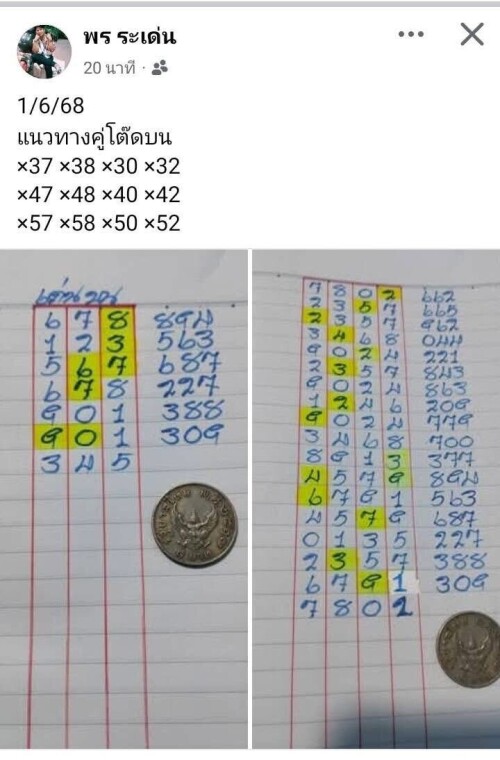 พร ระเด่น
20 นาที ·
1/6/68
แนวทางคู่โต๊ดบน
×37 ×38 ×30 ×32
×47 ×48 ×40 ×42
×57 ×58 ×50 ×52
เด่นบน
6 7 8 894
1 2 3 563
5 6 7 687
6 7 8 227
9 0 1 388
9 0 1 309
3 4 5
7 8 0 2 662
2 3 5 7 665
2 3 5 7 962
3 4 6 8 044
9 0 2 4 221
2 3 5 7 843
9 0 2 4 863
1 2 4 6 209
9 0 2 4 779
3 4 6 8 700
8 9 1 3 377
4 5 7 9 894
6 7 9 1 563
4 5 7 9 687
0 1 3 5 227
2 3 5 7 388
6 7 9 1 309
7 8 0 2